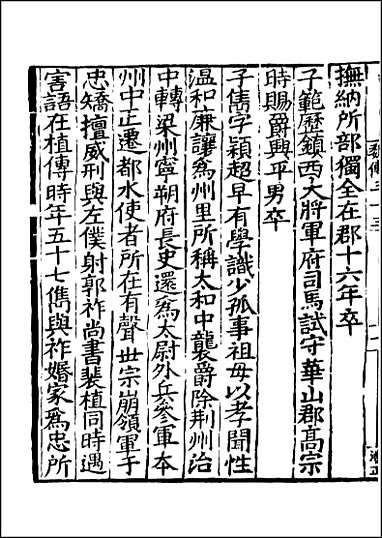 撫納所部獨全在郡十六年卒
子範歷鎮西大將軍府司馬試守華山郡高宗
時賜爵興平男卒
子儁字穎超早有學識少孤事祖母以孝聞性
温和廉讓爲州里所稱太和中襲爵除荆州治
中轉梁州寧朔府長史還爲太尉外兵參軍本
州中正遷都水使者所在有聲世宗崩領軍于
忠矯擅威刑與左僕射郭祚尚書裴植同時遇
害語在植傳時年五十七儁與祚婚家爲忠所